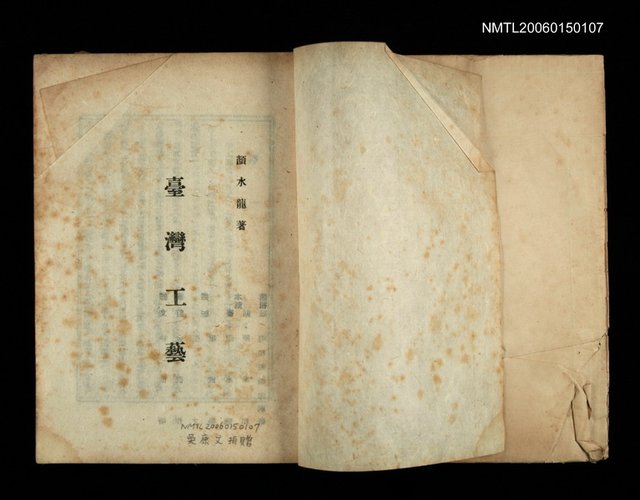 NMTL20060150107
顏水龍著
臺灣工藝
NMTL20060150107
吳康文捐贈